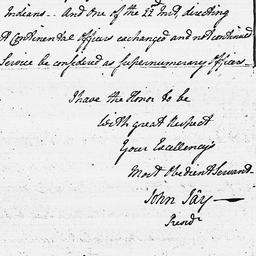 Indians -- And one of the 22d Inst. directing
A Continental Officers exchanged and not continued
Service be considered as supernumerary officers --
I have the Honor to be
With great Respect
Your Excellency's
Most Obedient Servant
John Jay --
Presidt